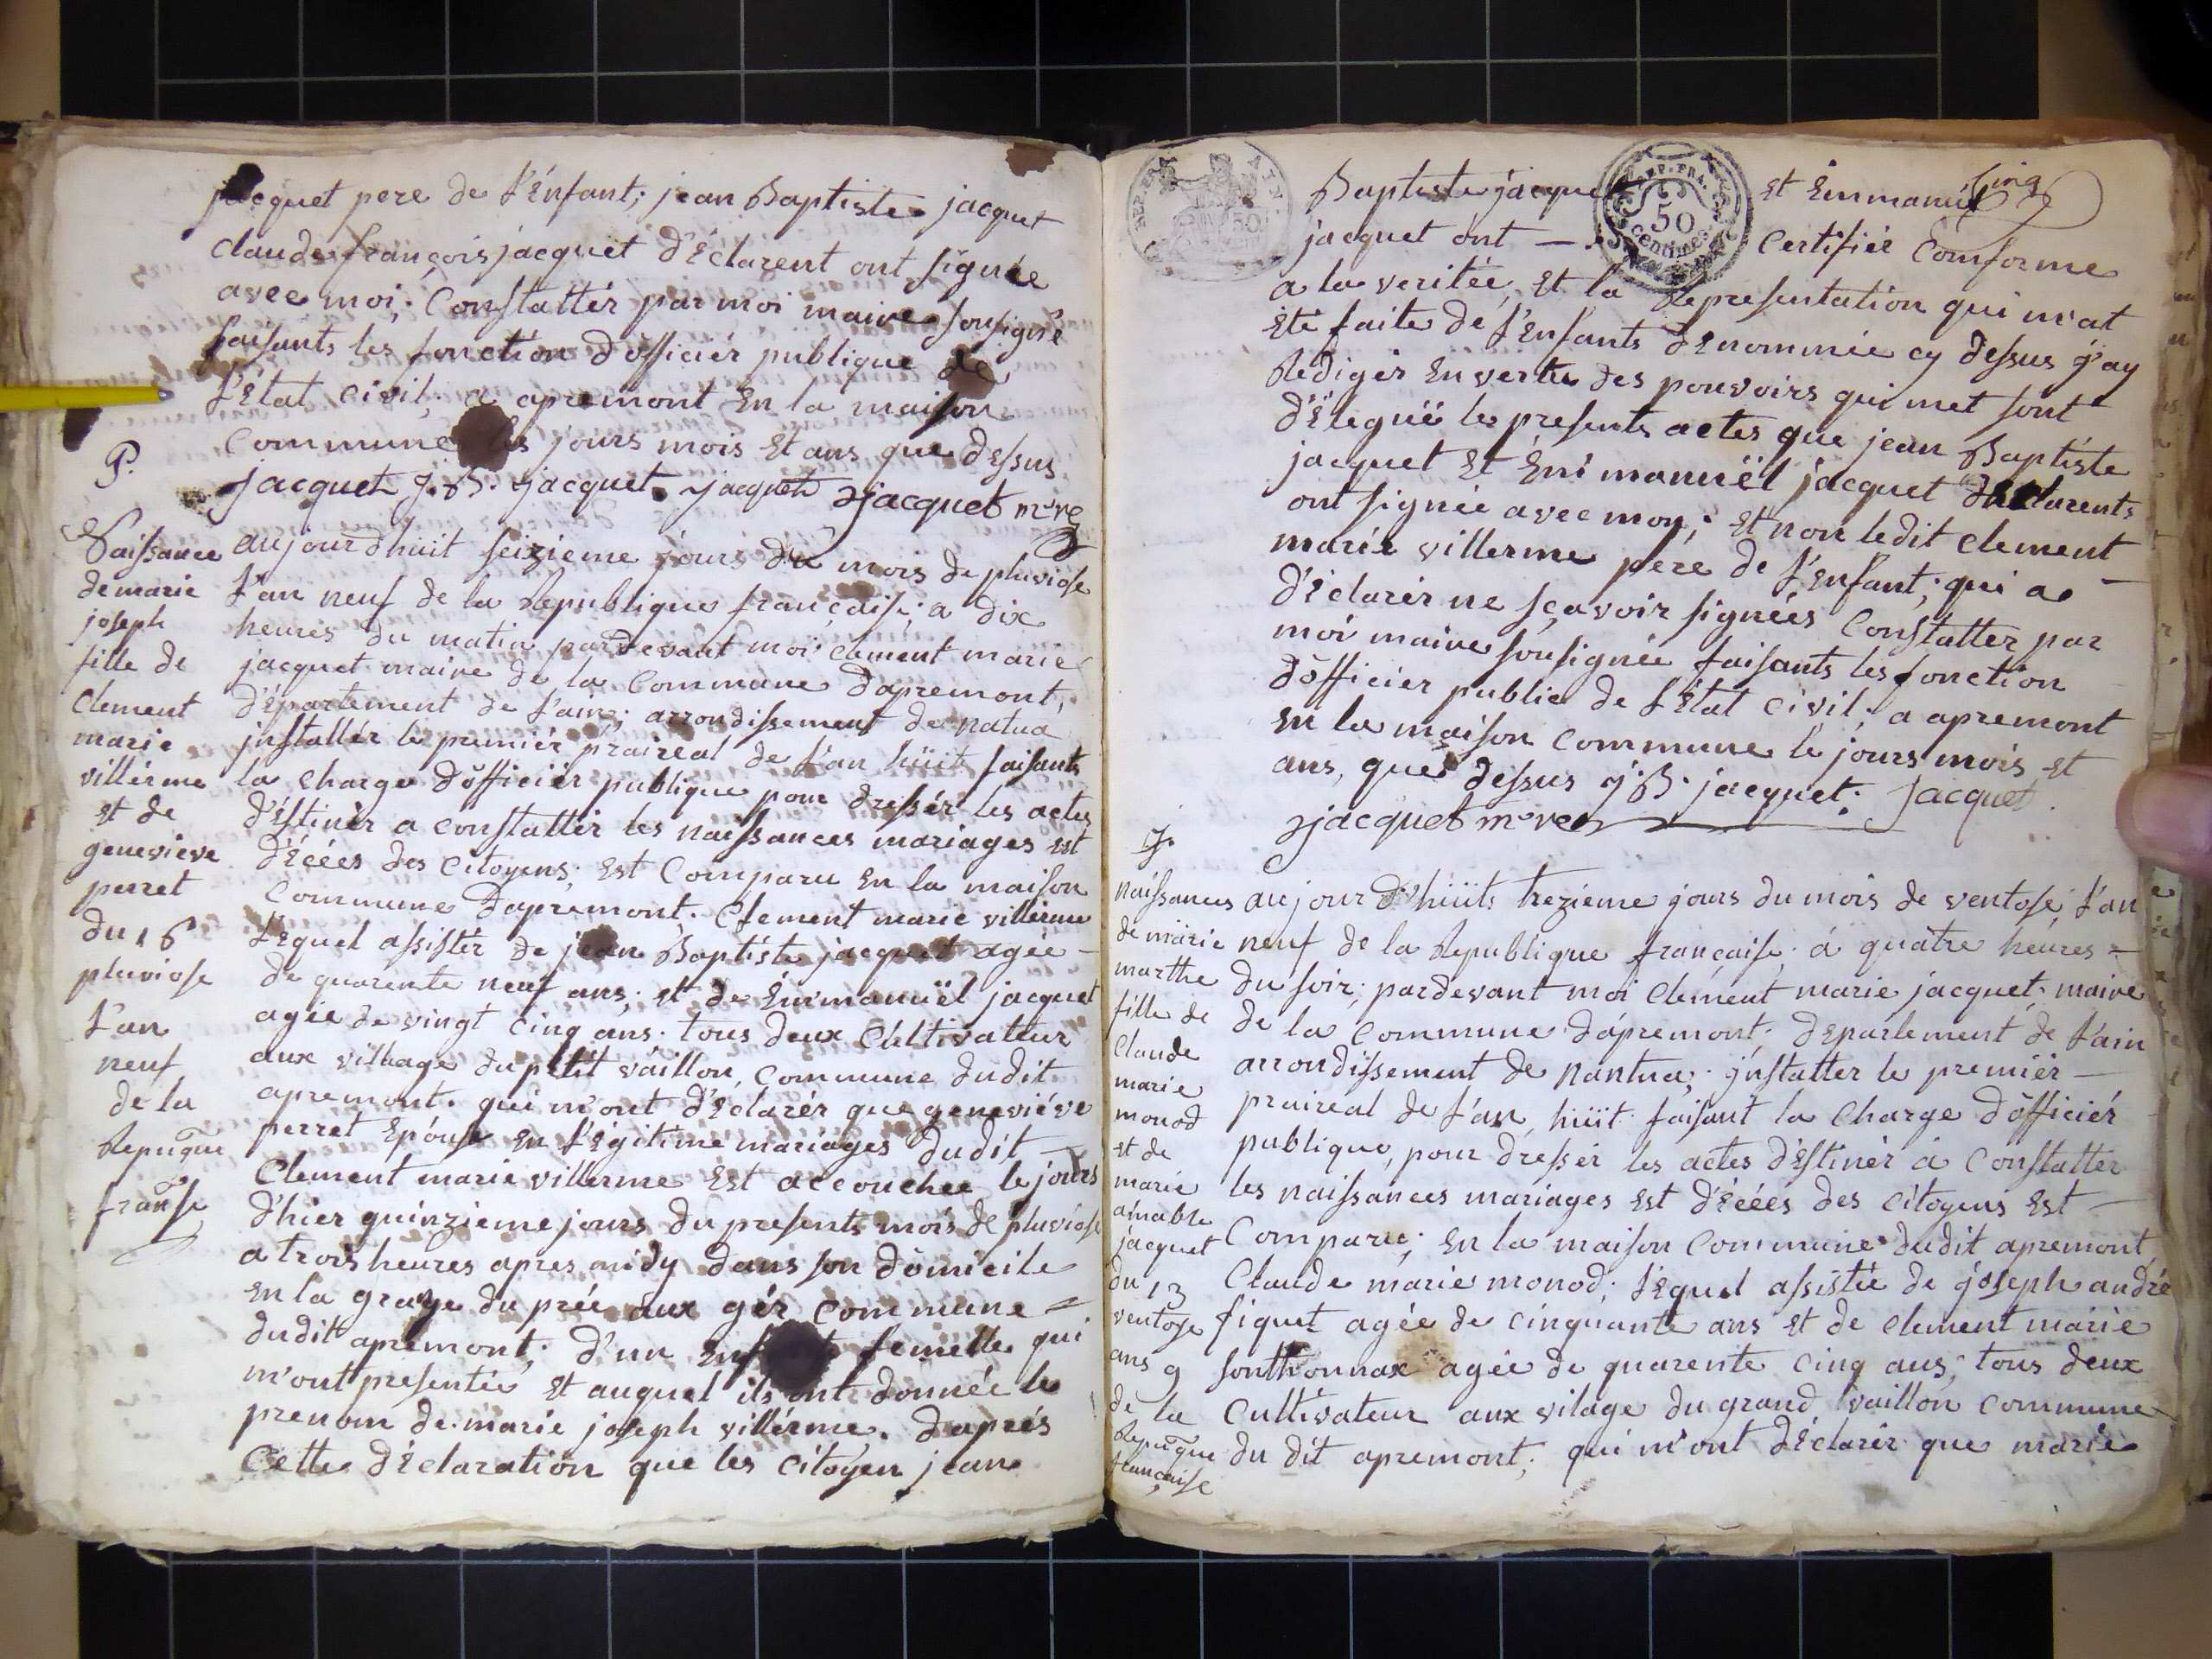 jacquet pere de l'énfant; jean Baptiste jacquet
claude françois jacquet d'éclarent ont signée
avec moi; Constattér par moi maire sousigné
faisants les fonction d'officiér publique de
l'état civil; a apremont en la maison
Commune les jours mois et ans que dessus
jacquet J. B. jacquet jacquet jacquet mre
P.
Naissance
de marie
joseph
fille de
Clement
marie
villérme
et de
genevieve
perret
du 16
pluviose
l'an
neuf
de la
Repuque
franse
aujourdhuit seizieme jours du mois de pluviose
l'an neuf de la Republique française; a dix
heures du matin pardevant moi clement marie
jacquet maire de la Commune d'apremont,
d'épartement de l'ain; arrondissement de natua
jnstallér le premiér praireal de l'an hüit faisants
la charge d'officiér publique pour dressér les actes
d'éstinér a constattér les naissances mariages est
d'écées des Citoyens; est Comparu en la maison
Commune d'apremont. Clement marie villérme
l'équel assistér de jean Baptiste jacquet agée -
de quarente neuf ans; et de Emmanuël jacquet
agée de vingt cinq ans; tous deux Cultivatteur
aux village du petit vâillon, Commune dudit
apremont. qui m'ont d'éclarér que geneviéve
perret épouse en l'égitime mariages dudit -
Clement marie villerme est accouchee le jours
d'hier quinzieme jours du presents mois de pluviose
a trois heures apres midy dans son domicile
en la grange du prée aux gér Commune =
dudit apremont; d'un femelle qui
m'ont presentée et auquel ils ont donnée le
prenom de marie joseph villérme. d'aprés
Cette d'éclaration que les Citoyen jean
REP. FRA.
50
centimes
Cinq
Baptiste jacquet et Emmanuël
jacquet ont — Certifiér Comforme
a la veritée, et la Representation qui m'at
été faite de l'enfants d'enommée cy dessus j'ay
Redigér en vertu des pouvoirs qui met sont
d'élégué les presents actes que jean Baptiste
jacquet et Emmanuël jacquet d'éclarents
ont signée avec moy; et non ledit Clement
marie villerme pere de l'enfant; qui a -
d'éclarér ne sçavoir signées Constatter par
moi maire sousignée faisants les fonction
d'officier public de l'état civil; a apremont
en la maison Commune le jours mois et
ans, que dessus j. B. jacquet. Jacquet
jacquet mre
J.
naissances
de marie
marthe
fille de
Claude
marie
monod
et de
marie
aimable
jacquet
du 13
ventose
ans 9
de la
Repuque
française
aujourd'hüits trezieme jours du mois de ventose, l'an
neuf de la Republique française; á quatre heures =
du soir; pardevant moi Clément marie jacquet; maire
de la Commune d'apremont; departement de l'ain
arrondissement de Nantua; jnstatter le premiér -
praireal de l'an, hüit faisant la Charge d'officiér
publique, pour dressér les actes d'éstinér á Constatter
les naissances mariages est d'écées des Citoyens est -
Comparu; en la maison Commune dudit apremont
Claude marie monod; l'équel assistée de joseph andré
figuet agée de cinquante ans et de Clement marie
sonthonnax agée de quarente cinq ans; tous deux
Cultivateur aux vilage du grand vaillon Commune
du dit apremont; qui m'ont d'éclarér que marie